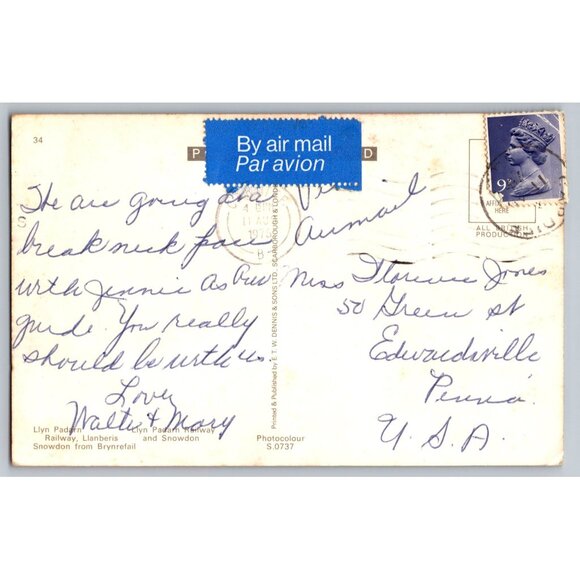 34
By air mail
Par avion
D
9P
AFFIX
HERE
ALL BRITISH
PRODUCTION
4
11 AUG
1978
We are going at a
breakneck pace
with Jennie as our
guide. You really
should be with us.
Love,
Walter & Mary
Via
Airmail
Miss Florence Jones
50 Green St
Edwardsville
Penna.
U.S.A.
Printed & Published by E. T. W. DENNIS & SONS LTD., SCARBOROUGH & LONDON
Llyn Padarn
Railway, Llanberis
Snowdon from Brynrefail
Llyn Padarn Railway
and Snowdon
Photocolour
S.0737